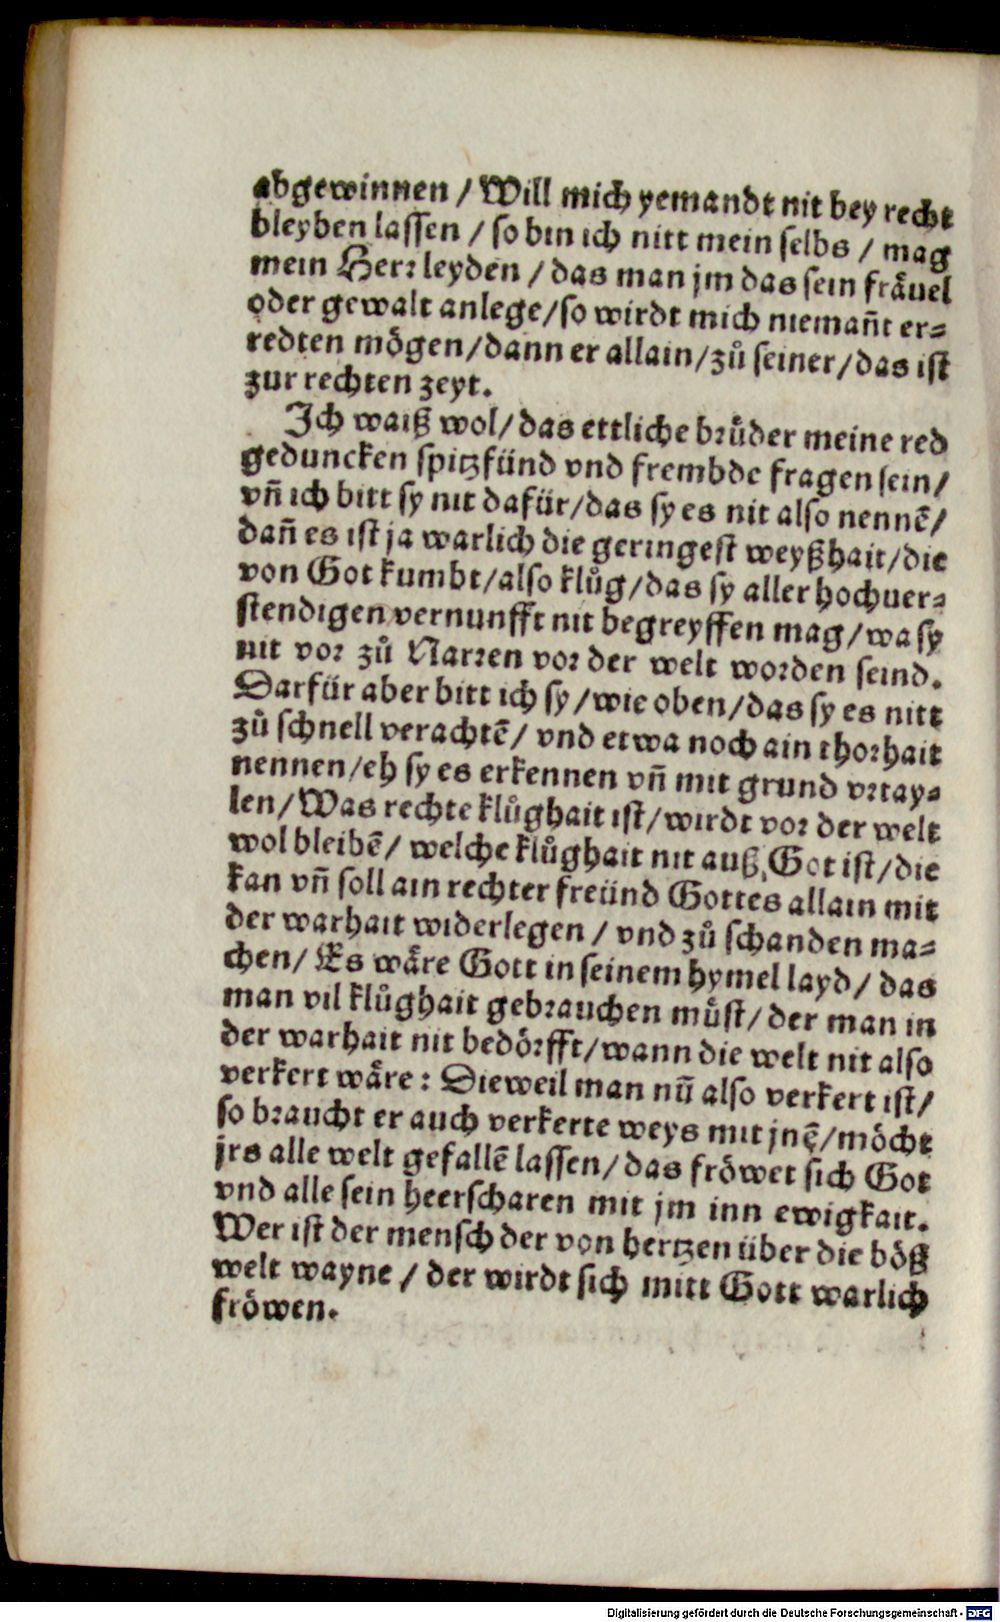 abgewinnen / Will mich yemandt nit bey recht
bleyben lassen / so bin ich nitt mein selbs / mag
mein Herr leyden / das man jm das sein fråuel
oder gewalt anlege/so wirdt mich niemañt er=
redten mögen/dann er allain/zů seiner/das ist
zur rechten zeyt.
Ich waiß wol/das ettliche brůder meine red
geduncken spitzfünd vnd frembde fragen sein/
vñ ich bitt sy nit dafür/das sy es nit also nennē/
dañ es ist ja warlich die geringest weyßhait/die
von Got kumbt/also klůg/das sy aller hochuer=
stendigen vernunfft nit begreyffen mag/wa sy
nit vor zů Narren vor der welt worden seind.
Darfür aber bitt ich sy/wie oben/das sy es nitt
zů schnell verachtē/ vnd etwa noch ain thorhait
nennen/eh sy es erkennen vñ mit grund vrtay=
len/Was rechte klůghait ist/wirdt vor der welt
wol bleibē/ welche klůghait nit auß Got ist/die
kan vñ soll ain rechter freünd Gottes allain mit
der warhait widerlegen / vnd zů schanden ma=
chen/ Es wåre Gott in seinem hymel layd/ das
man vil klůghait gebrauchen můst/der man in
der warhait nit bedörfft/wann die welt nit also
verkert wåre: Dieweil man nū also verkert ist/
so braucht er auch verkerte weys mit jnē/möcht
jrs alle welt gefallē lassen/das fröwet sich Got
vnd alle sein heerscharen mit jm inn ewigkait.
Wer ist der mensch der von hertzen über die böß
welt wayne / der wirdt sich mitt Gott warlich
fröwen.
Digitalisierung gefördert durch die Deutsche Forschungsgemeinschaft - DFG